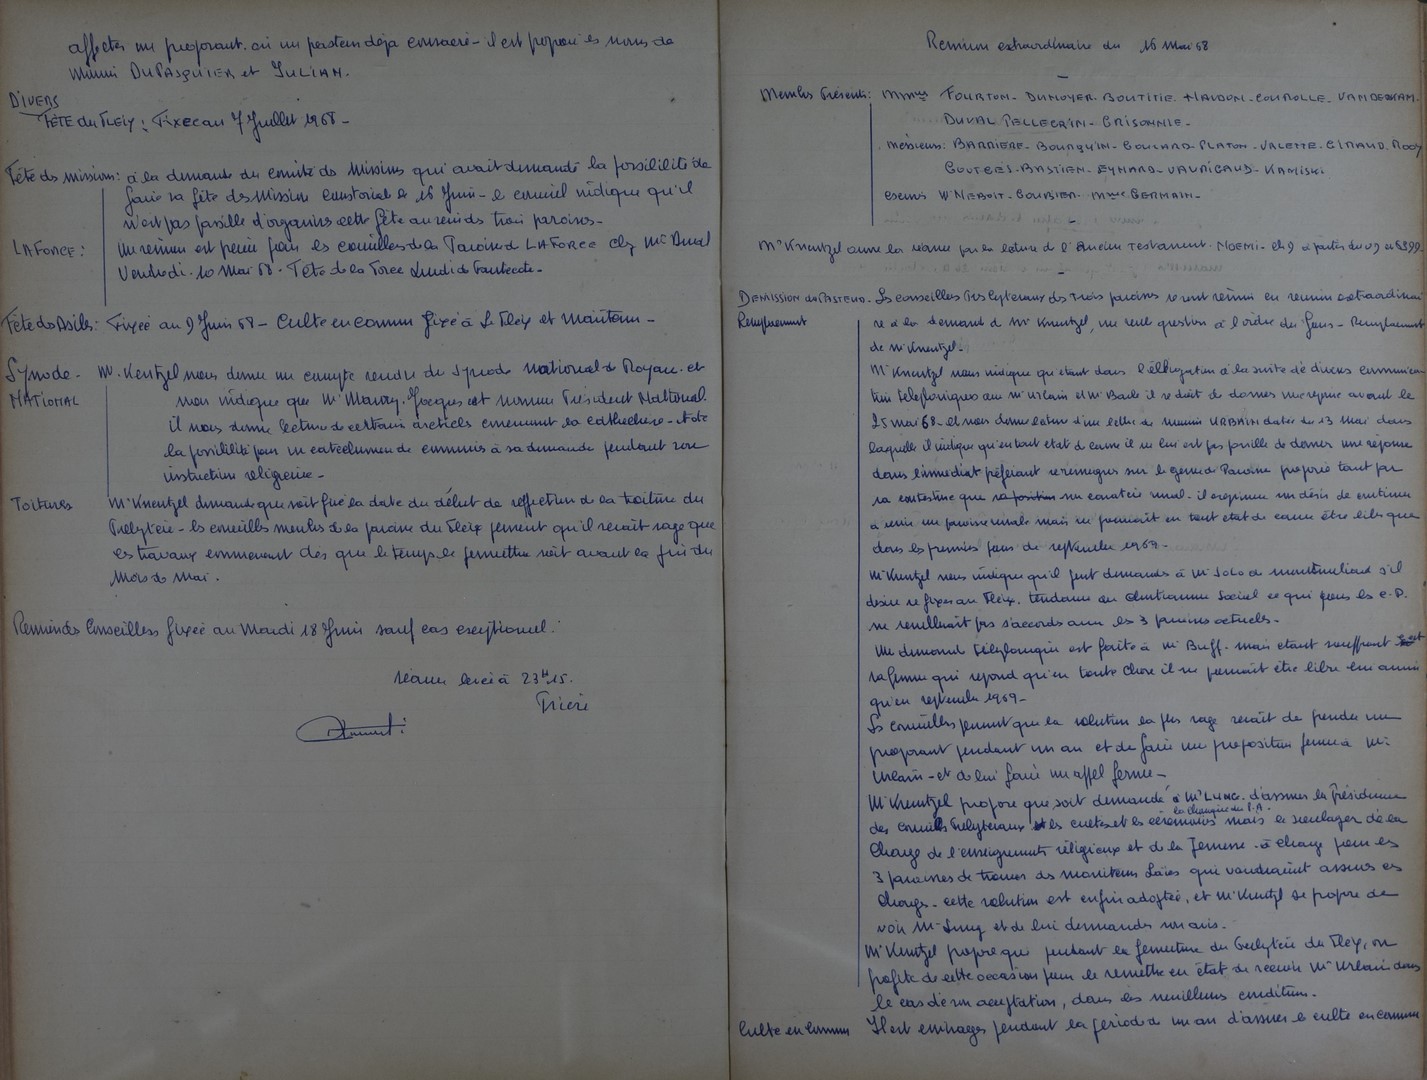 affecter un proposant. ou un pasteur déja consacré - il est proposé les noms de
DUPASQUIER et JULIAN.
DIVERS
FÊTE du FLEIX : Fixée au 7 Juillet 1968 -
Fête des missions : à la demande du comité des Missions qui avait demandé la possibilité de
faire sa fête des Mission le 16 Juin - le conseil indique qu'il
n'est pas possible d'organiser cette fête au sein des trois paroisses -
LAFORCE : Une réunion est prévue pour les conseillers de la Paroisse de LAFORCE chez Mr Duval
Vendredi 10 Mai 68 - Fête de la Force Lundi de Pentecôte -
Fête des Asiles : Fixée au 9 Juin 68 - Culte en commun fixé à Le Fleix et
Synode - Mr. Kentzel nous donne un compte rendu du Synode National de Royan - et
NATIONAL nous indique que Mr Maury Jacques est nommé Président National.
il nous donne lecture de certains articles concernant la catéchèse - et de
la possibilité pour un catéchumène de communier à sa demande pendant son
instruction religieuse -
Toitures Mr Kneutzel demande que soit fixé la date du début de réfection de la toiture du
Presbytère - les conseillers membres de la paroisse du Fleix pensent qu'il serait sage que
les travaux commencent dès que le temps le permettra soit avant la fin du
Mois de Mai.
Réunion des Conseillers fixée au Mardi 18 Juin sauf cas exceptionnel.
séance levée à 23H15.
Prière
Réunion extraordinaire du 16 Mai 68
Membres Présents : Mmes FOURTON - DUMOYER - BOUTITIE - NARDON - COUROLLE -
DUVAL PELLEGRIN - GRISONNIE -
Messieurs : BARRIERE - BOURQUIN - BOUCARD - PLATON - VALETTE - GIRAUD -
BASTIEN - EYMARD - VAURIGAUD - KAMISKI
excusés Mme GERMAIN -
Mr Kneutzel ouvre la séance par la lecture de l'Ancien Testament. NOEMI - ch 9 à partir du v 9
DEMISSION du PASTEUR - Les conseillers Presbyteraux des trois paroisses se sont réunis en réunion extraordinai
Remplacement re à la demande de Mr Kneutzel, une seule question à l'ordre du jour - Remplacement
de Mr Kneutzel -
Mr Kneutzel nous indique qu'étant dans l'obligation à la suite de diverses communica
tion téléphoniques avec Mr Urbain et Mr il se doit de donner une réponse avant le
25 mai 68 - et nous donne lecture d'une lettre de monsieur URBAIN datée du 13 Mai dans
laquelle il indique qu'en tout état de cause il ne lui est pas possible de donner une réponse
dans l'immédiat préférant se renseigner sur le genre de Paroisse proposée tant par
sa contexture que sa position son caractère rural - il exprime un désir de continuer
à servir une paroisse rurale mais ne pourrait en tout état de cause être libre que
dans les premiers jours de septembre 1969 -
Mr Kneutzel nous indique qu'il peut demander à Mr de s'il
désire se fixer au Fleix. tendance au Christianisme Social ce qui pour les C.P.
ne semblerait pas s'accorder avec les 3 paroisses actuelles -
Une demande téléphonique est faite à Mr Buff. mais étant souffrant c'est
sa femme qui répond qu'en toute chose il ne pourrait être libre lui aussi
qu'en septembre 1969 -
Les conseillers pensent que la solution la plus sage serait de prendre un
proposant pendant un an et de faire une proposition ferme à Mr
Urbain - et de lui faire un appel ferme -
Mr Kneutzel propose que soit demandé à Mr LUNG. d'assurer la Présidence
des Conseils Presbyteraux et les cultes et les cérémonies mais le soulager de la
charge de l'enseignement réligieux et de la Jeunesse - à charge pour les
3 paroisses de trouver des moniteurs Laïcs qui voudraient assurer ces
charges - cette solution est enfin adoptée, et Mr Kneutzel se propose de
voir Mr Lung et de lui demander son avis.
Mr Kneutzel propose que pendant la fermeture du Presbytère du Fleix, on
profite de cette occasion pour le remettre en état de recevoir Mr Urbain dans
le cas de son acceptation, dans les meilleures conditions.
Culte en Commun Il est envisagé pendant la période d'un an d'assurer le culte en commun